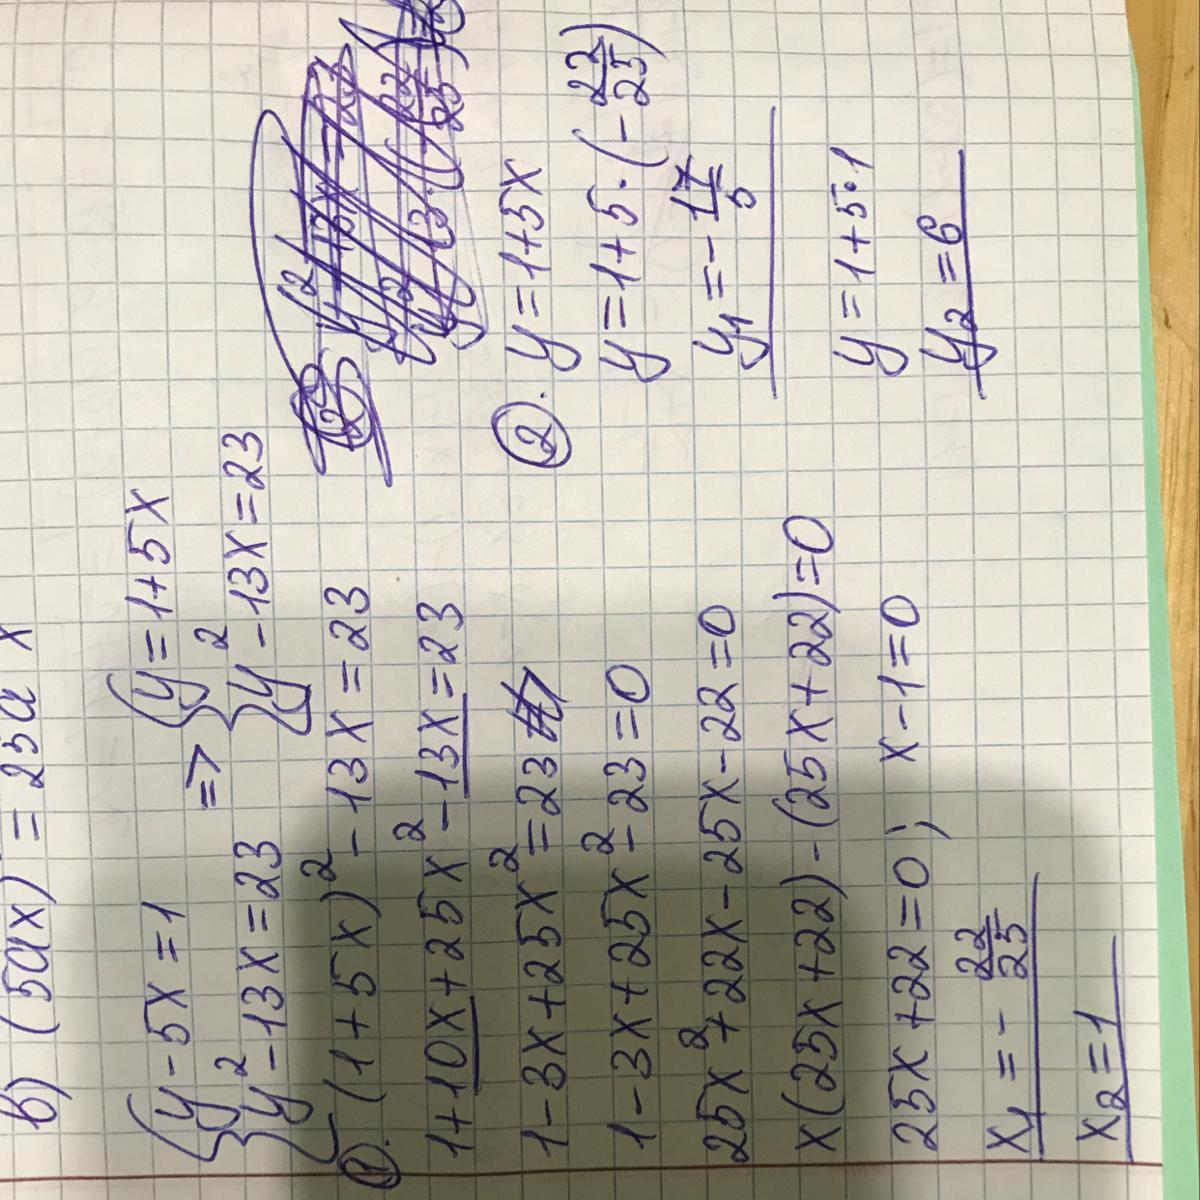 в) (5ax) = 25a x
{ y - 5x = 1
y² - 13x = 23
=> { y = 1 + 5x
y² - 13x = 23
①. (1 + 5x)² - 13x = 23
1 + 10x + 25x² - 13x = 23
1 - 3x + 25x² = 23
1 - 3x + 25x² - 23 = 0
25x² + 22x - 25x - 22 = 0
x(25x + 22) - (25x + 22) = 0
25x + 22 = 0; x - 1 = 0
x₁ = - 22/25
x₂ = 1
②. y = 1 + 5x
y = 1 + 5 · (- 22/25)
y₁ = - 17/5
y = 1 + 5 · 1
y₂ = 6